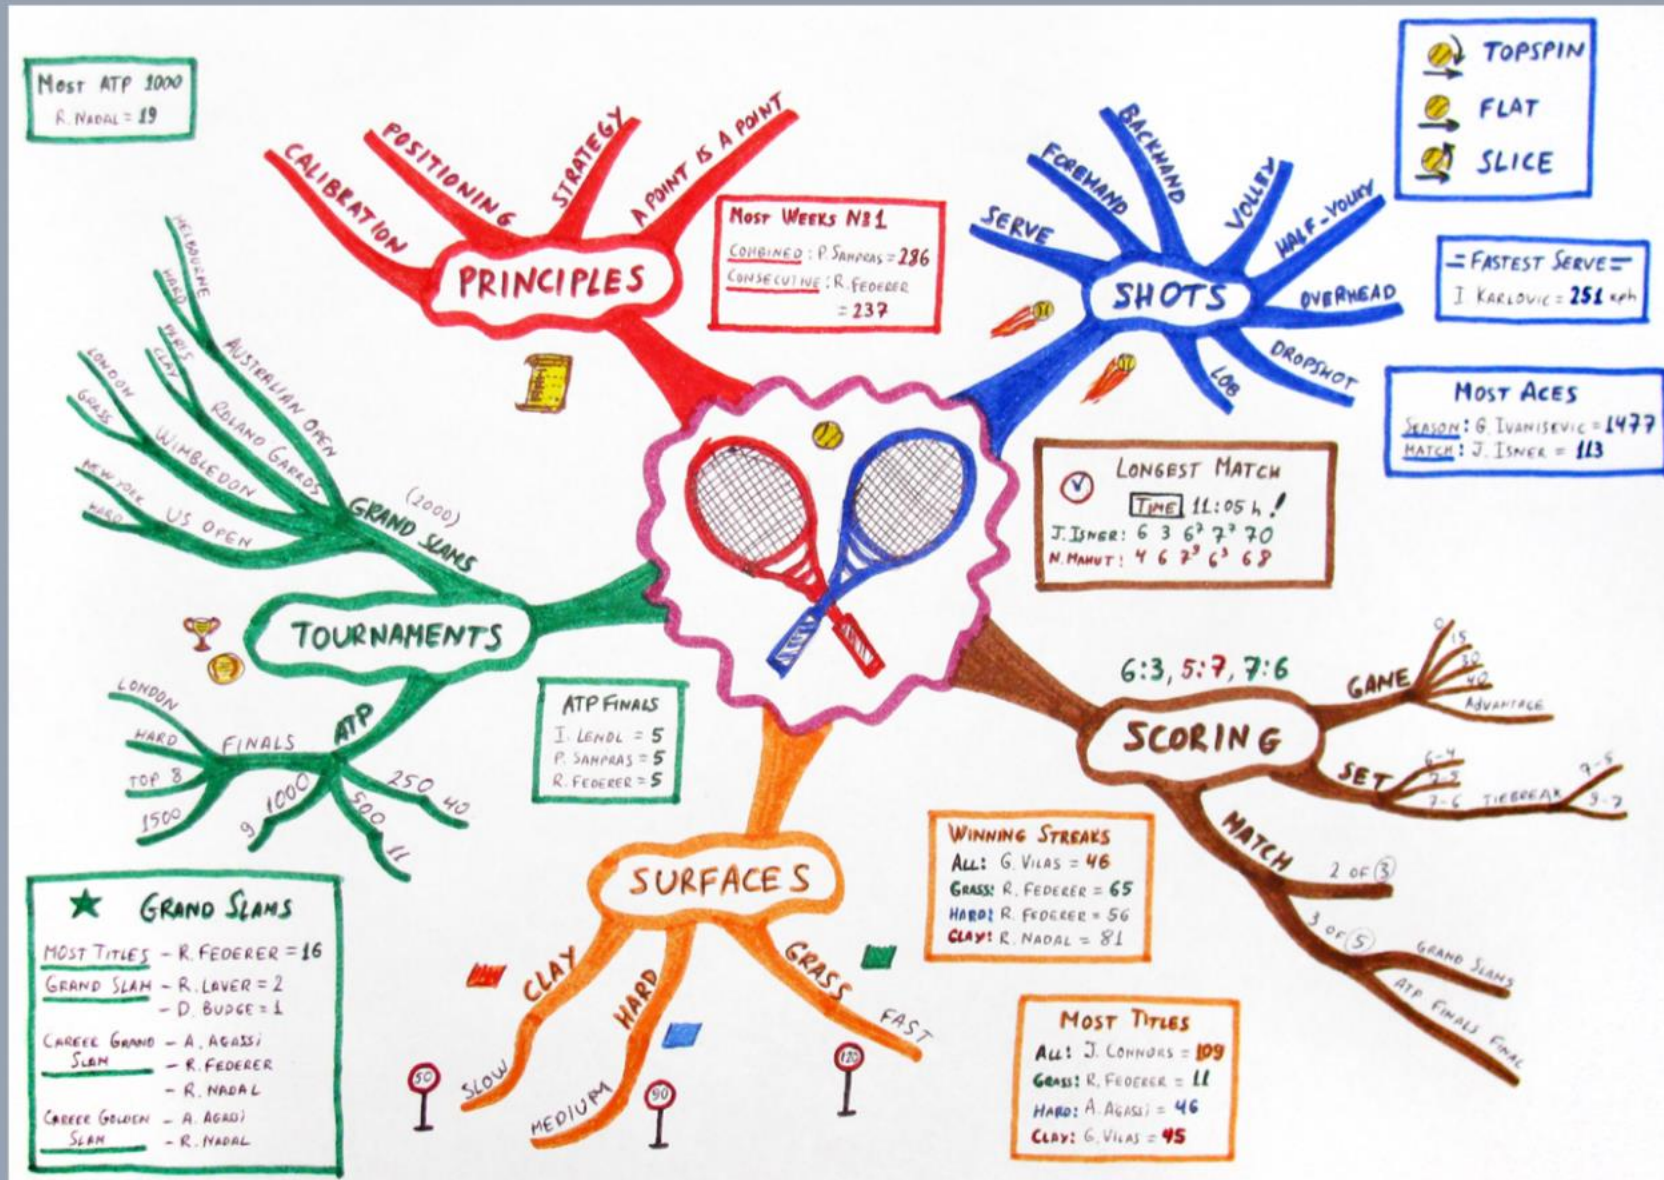 MOST ATP 1000
R. NADAL = 19
CALIBRATION
POSITIONING
STRATEGY
A POINT IS A POINT
PRINCIPLES
MOST WEEKS Nº1
COMBINED : P. SAMPRAS = 286
CONSECUTIVE : R. FEDERER
= 237
SERVE
FOREHAND
BACKHAND
VOLLEY
HALF-VOLLEY
OVERHEAD
DROPSHOT
LOB
SHOTS
TOPSPIN
FLAT
SLICE
= FASTEST SERVE =
I KARLOVIC = 251 kph
MOST ACES
SEASON : G. IVANISEVIC = 1477
MATCH : J. ISNER = 113
LONGEST MATCH
TIME 11:05 h !
J. ISNER : 6 3 6⁷ 7⁷ 70
N. MAHUT : 4 6 7⁹ 6³ 68
MELBOURNE
HARD
AUSTRALIAN OPEN
PARIS
CLAY
ROLAND GARROS
LONDON
GRASS
WIMBLEDON
NEW YORK
HARD
US OPEN
(2000)
GRAND SLAMS
TOURNAMENTS
ATP
FINALS
LONDON
HARD
TOP 8
1500
1000
9
500
11
250
40
ATP FINALS
I. LENDL = 5
P. SAMPRAS = 5
R. FEDERER = 5
6:3, 5:7, 7:6
SCORING
GAME
0
15
30
40
ADVANTAGE
SET
6-4
7-5
7-6
TIEBREAK
7-5
9-7
MATCH
2 OF 3
3 OF 5
GRAND SLAMS
ATP FINALS FINAL
SURFACES
CLAY
SLOW
50
HARD
MEDIUM
90
GRASS
FAST
120
WINNING STREAKS
ALL: G. VILAS = 46
GRASS: R. FEDERER = 65
HARD: R. FEDERER = 56
CLAY: R. NADAL = 81
MOST TITLES
ALL: J. CONNORS = 109
GRASS: R. FEDERER = 11
HARD: A. AGASSI = 46
CLAY: G. VILAS = 45
GRAND SLAMS
MOST TITLES - R. FEDERER = 16
GRAND SLAM - R. LAVER = 2
- D. BUDGE = 1
CAREER GRAND - A. AGASSI
SLAM - R. FEDERER
- R. NADAL
CAREER GOLDEN - A. AGASSI
SLAM - R. NADAL